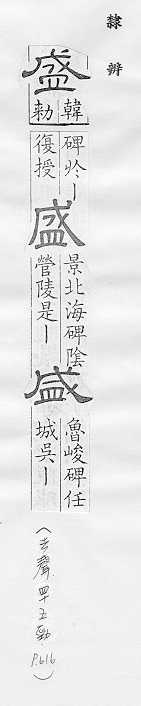 隸辨
盛
韓
勑
碑於丨
復授
盛
景北海碑陰
營陵是丨
盛
魯峻碑任
城吳丨
(去聲 四十五勁 P.616)